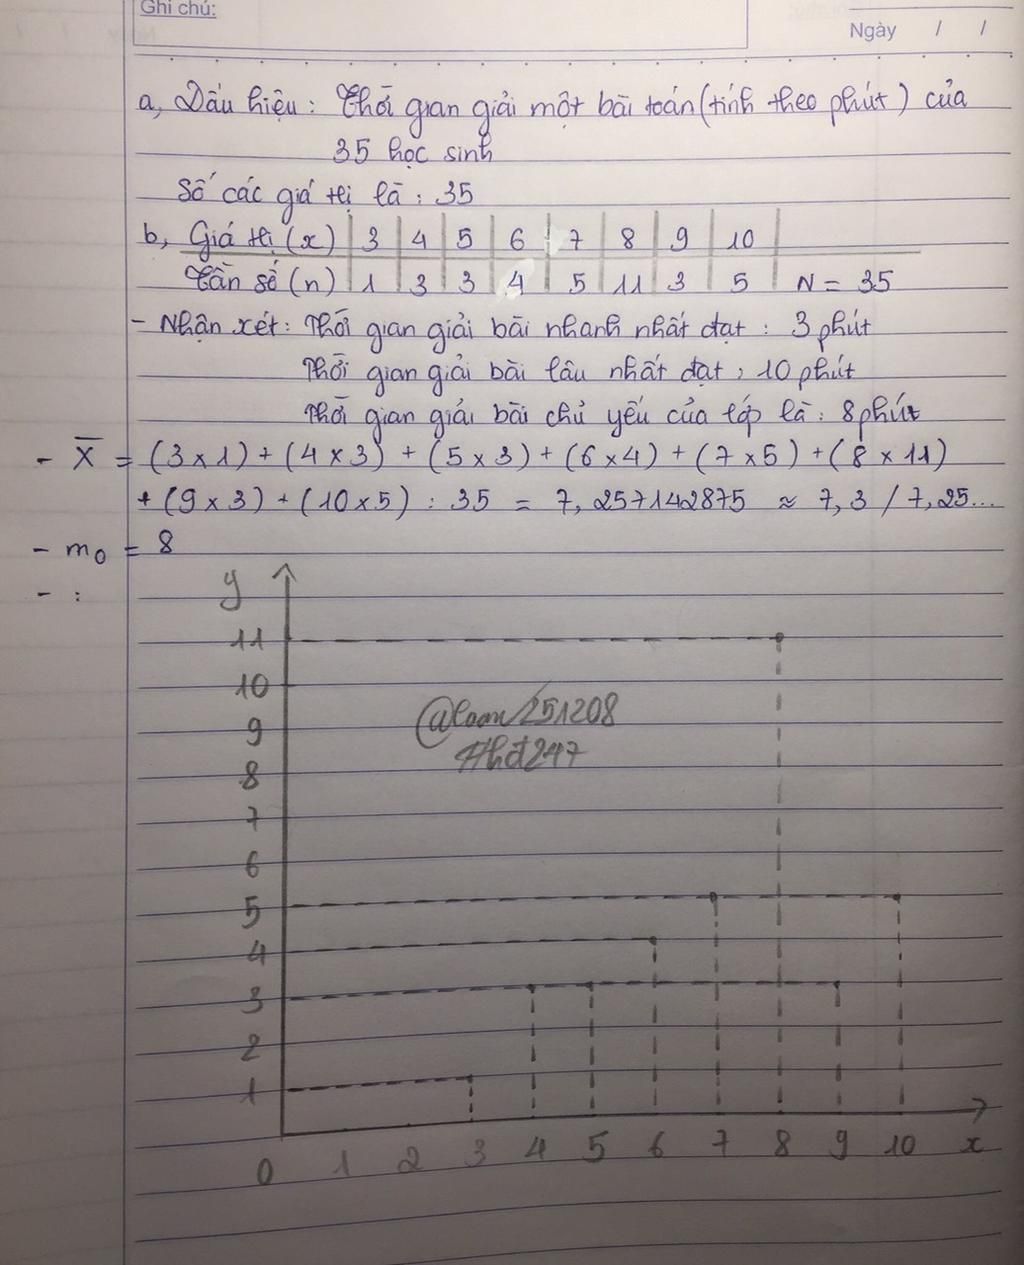 Ghi chú:
Ngày / /
a, Dấu hiệu : Thời gian giải một bài toán (tính theo phút) của
35 học sinh
Số các giá trị là : 35
b, Giá trị (x) 3 4 5 6 7 8 9 10
Tần số (n) 1 3 3 4 5 11 3 5 N = 35
- Nhận xét : Thời gian giải bài nhanh nhất đạt : 3 phút
Thời gian giải bài lâu nhất đạt : 10 phút
Thời gian giải bài chủ yếu của lớp là : 8 phút
- X̅ = (3 x 1) + (4 x 3) + (5 x 3) + (6 x 4) + (7 x 5) + (8 x 11)
+ (9 x 3) + (10 x 5) : 35 = 7,257142875 ≈ 7,3 / 7,25...
- m₀ = 8
- :
y
11
10
@loan251208
9
#hđ247
8
7
6
5
4
3
2
1
0 1 2 3 4 5 6 7 8 9 10 x